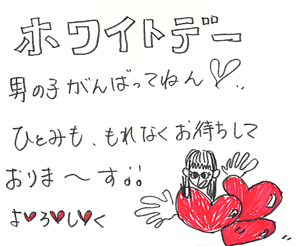 ホワイトデー
男の子がんばってねん♡..
ひとみも、もれなくお待ちして
おりま〜す♪♪
よ♥ろ♥し♥く